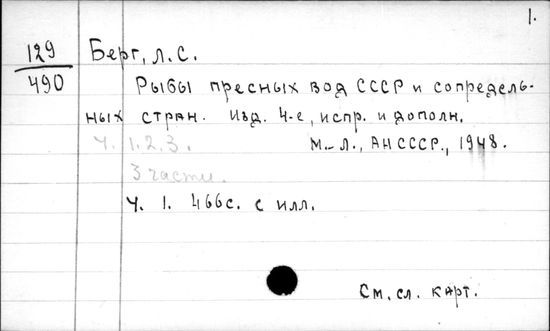 1.
129
490
Берг, Л.С.
Рыбы пресных вод СССР и сопредель-
ных стран. Изд. 4-е, испр. и дополн.
Ч. 1.2.3. М.-Л., АН СССР., 1948.
3 части.
Ч. 1. 466с. с илл.
См. сл. карт.